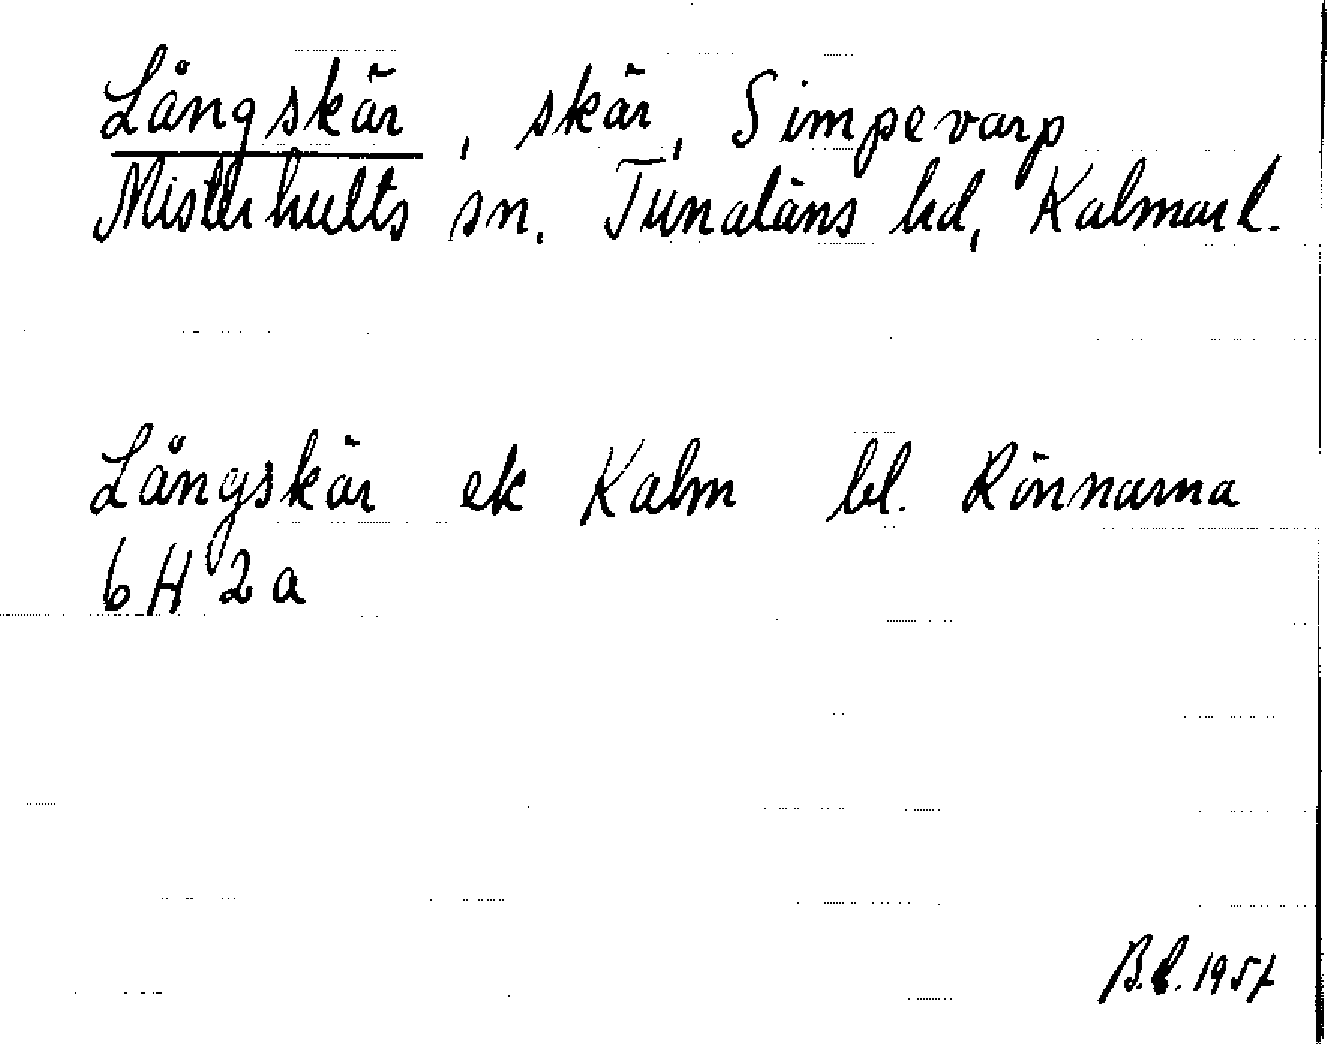 Långskär, skär, Simpevarp
Misterhults sn. Tunaläns hd, Kalmar l.
Långskär ek Kalm bl. Rönnarna
6H 2a
B.E. 1957